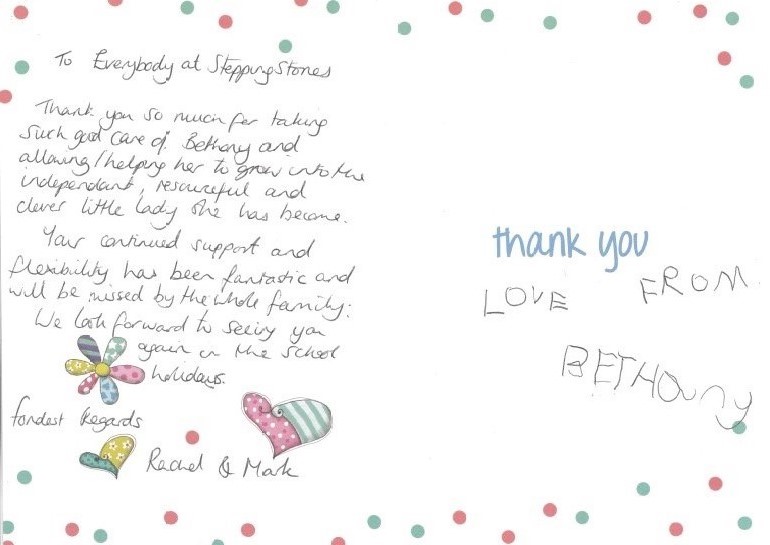 To Everybody at Stepping Stones
Thank you so much for taking
such good care of Bethany and
allowing/helping her to grow into the
independant, resourceful and
clever little lady she has become.
Your continued support and
flexibility has been fantastic and
will be missed by the whole family.
We look forward to seeing you
again in the school
holidays.
fondest Regards
Rachel & Mark
thank you
LOVE FROM
BETHANY